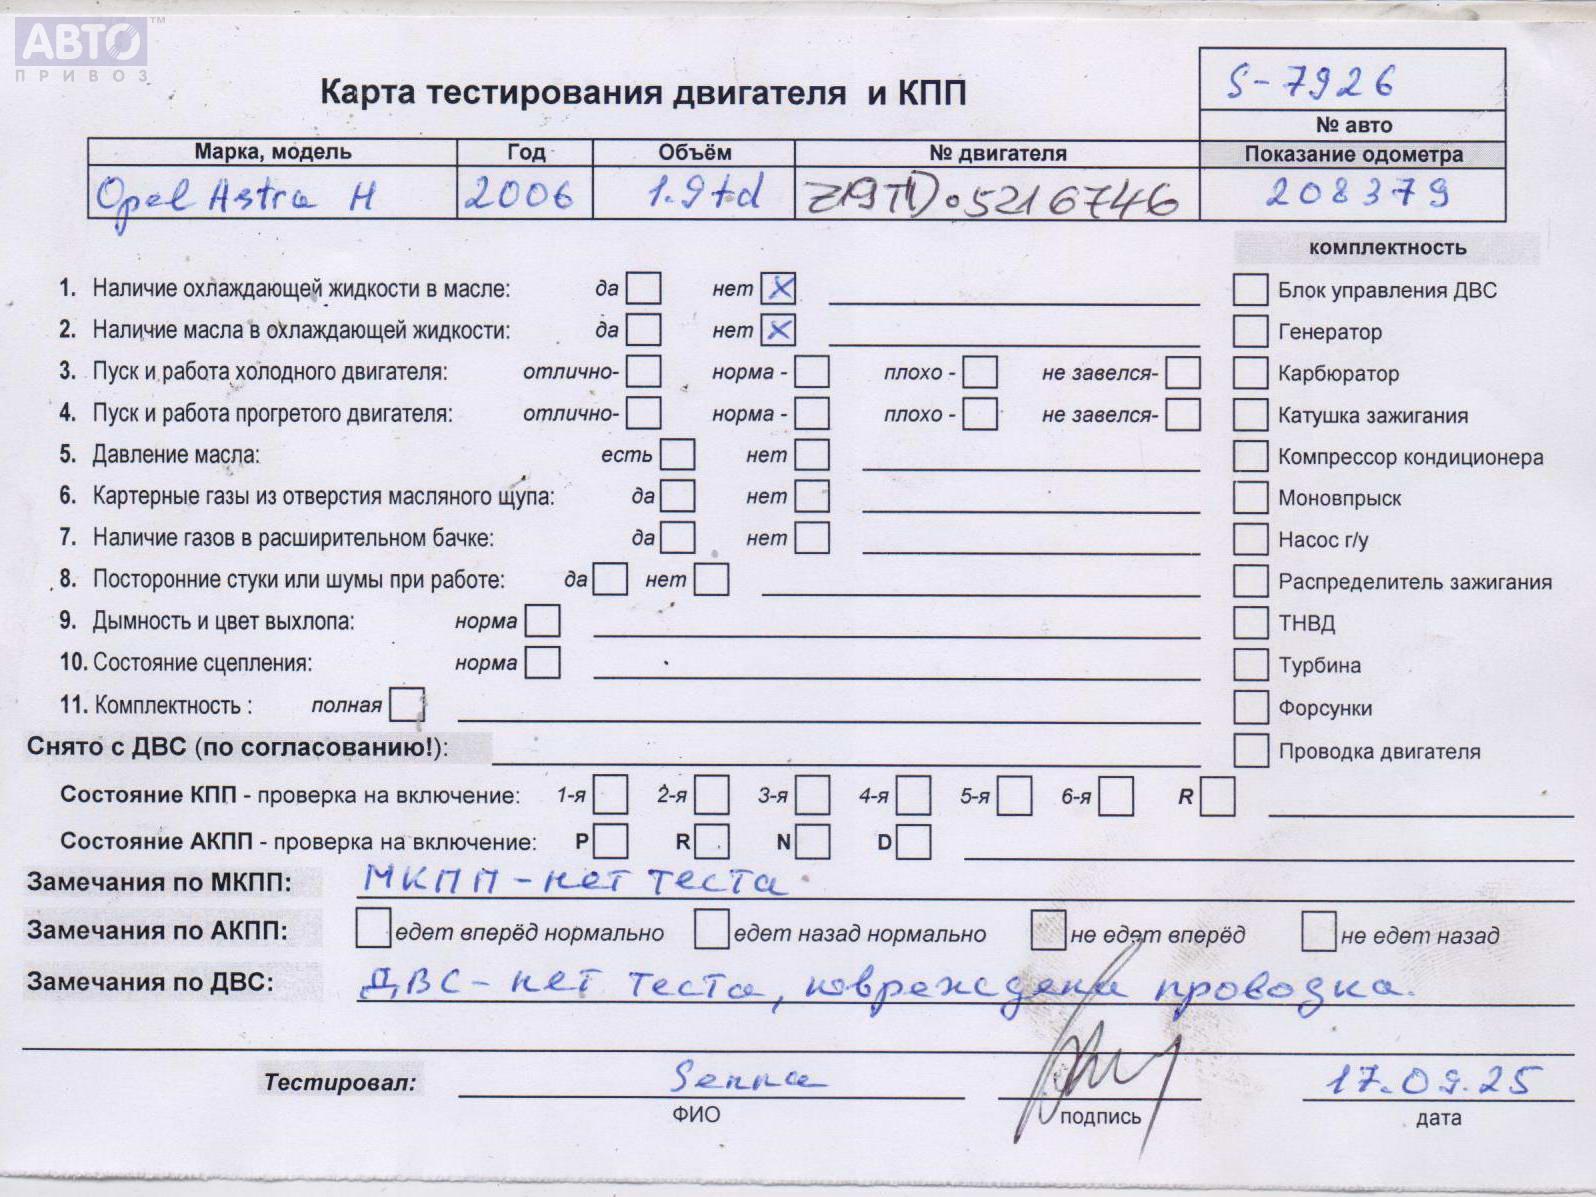 АВТО ™
ПРИВОЗ
S-7926
Карта тестирования двигателя и КПП
№ авто
Марка, модель Год Объём № двигателя Показание одометра
Opel Astra H 2006 1.9td Z19TD•5216746 208379
комплектность
1. Наличие охлаждающей жидкости в масле: да нет X Блок управления ДВС
2. Наличие масла в охлаждающей жидкости: да нет X Генератор
3. Пуск и работа холодного двигателя: отлично- норма - плохо - не завелся- Карбюратор
4. Пуск и работа прогретого двигателя: отлично- норма - плохо - не завелся- Катушка зажигания
5. Давление масла: есть нет Компрессор кондиционера
6. Картерные газы из отверстия масляного щупа: да нет Моновпрыск
7. Наличие газов в расширительном бачке: да нет Насос г/у
8. Посторонние стуки или шумы при работе: да нет Распределитель зажигания
9. Дымность и цвет выхлопа: норма ТНВД
10. Состояние сцепления: норма Турбина
11. Комплектность : полная Форсунки
Снято с ДВС (по согласованию!): Проводка двигателя
Состояние КПП - проверка на включение: 1-я 2-я 3-я 4-я 5-я 6-я R
Состояние АКПП - проверка на включение: P R N D
Замечания по МКПП: МКПП - нет теста
Замечания по АКПП: едет вперёд нормально едет назад нормально не едет вперёд не едет назад
Замечания по ДВС: ДВС - нет теста, повреждена проводка.
Тестировал: 17.09.25
ФИО подпись дата